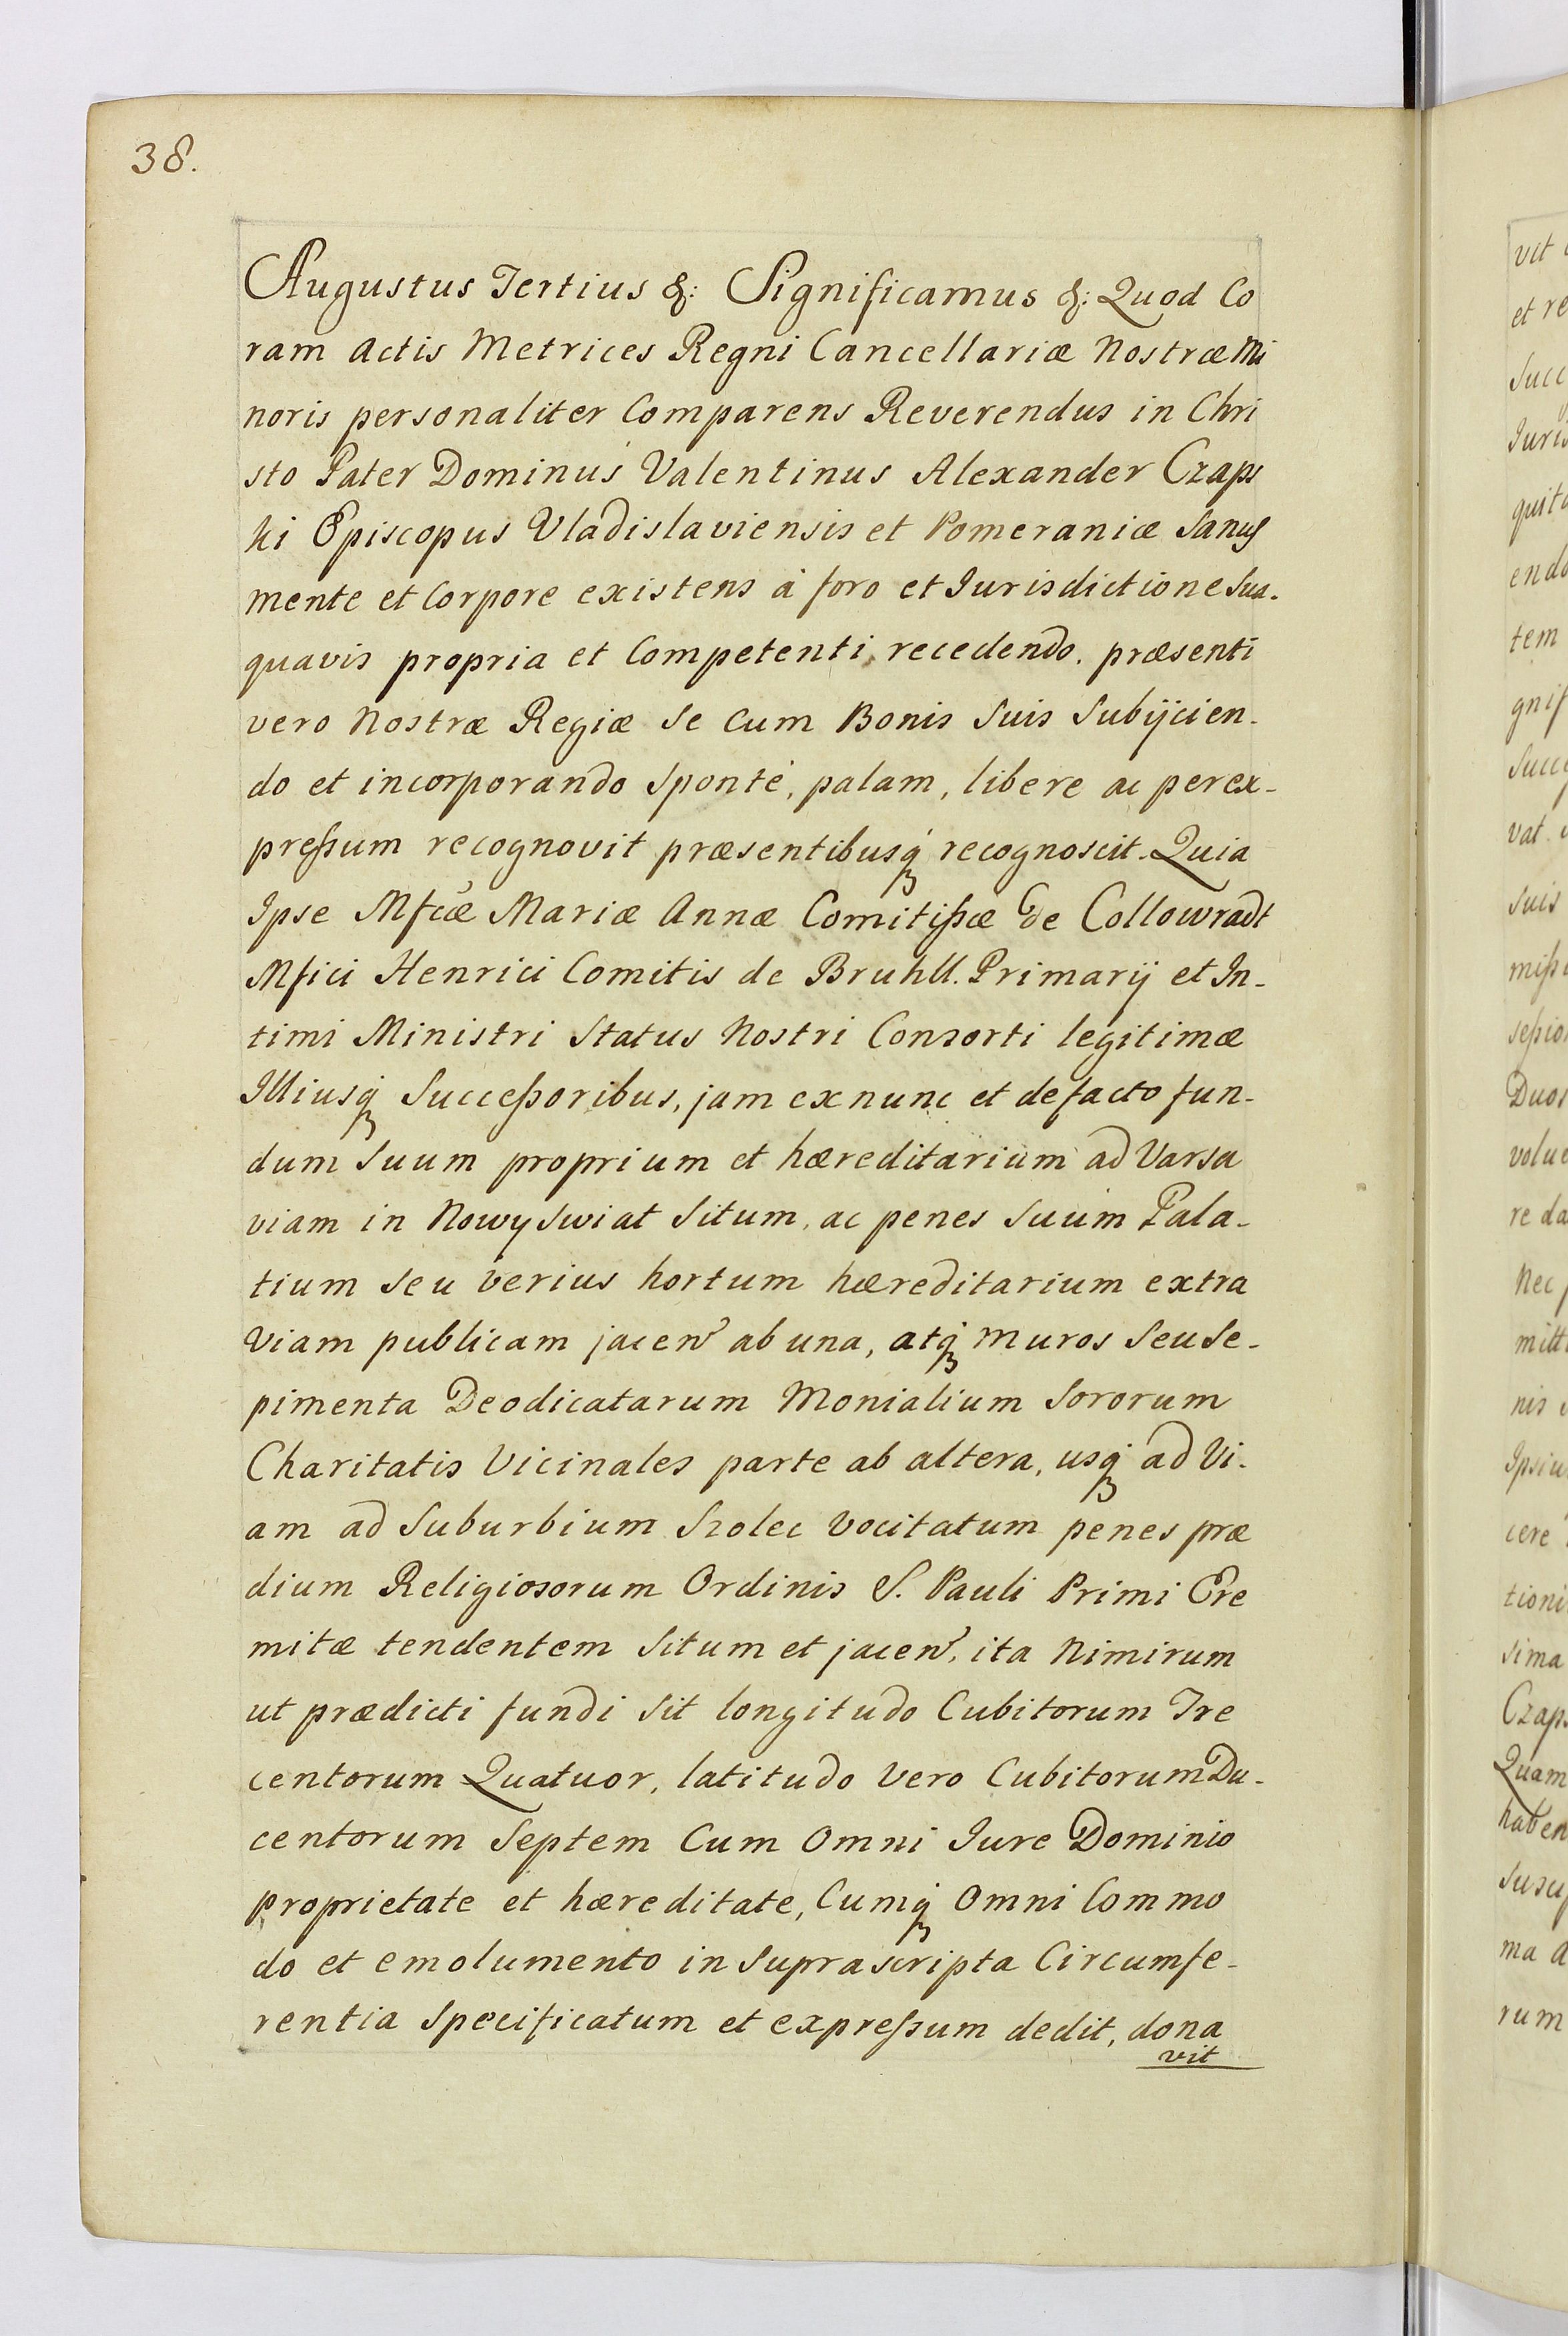 38.
Augustus Tertius &: Significamus &: Quod Co
ram Actis Metrices Regni Cancellariæ Nostræ Mi
noris personaliter Comparens Reverendus in Chri
sto Pater Dominus Valentinus Alexander Czaps
ki Episcopus Vladislaviensis et Pomeraniæ Sanus
mente et Corpore existens à foro et Iurisdictione Sua.
quavis propria et Competenti, recedendo. præsenti
vero Nostræ Regiæ Se Cum Bonis Suis Subijcien-
do et incorporando Sponté, palam, libere ac perex-
preſsum recognovit præsentibusq́ꝫ recognoscit. Quia
Ipse Mfcæ Mariæ Annæ Comitiſsæ de Collowradt
Mfici Henrici Comitis de Bruhll. Primarij et In-
timi Ministri Status Nostri Consorti legitimæ
Illiusq́ꝫ Succeſsoribus, jam ex nunc et de facto fun-
dum Suum proprium et hæreditarium ad Varsa
viam in Nowy Swiat Situm, ac penes Suum Pala-
tium Seu verius hortum hæreditarium extra
Viam publicam jacen̄ ab una, atq́ꝫ muros Seu Se-
pimenta Deodicatarum Monialium Sororum
Charitatis Vicinales parte ab altera, usq́ꝫ ad Vi-
am ad Suburbium Szolec Vocitatum penes præ
dium Religiosorum Ordinis S. Pauli Primi Ere
mitæ tendentem Situm et jacen̄, ita Nimirum
ut prædicti fundi Sit longitudo Cubitorum Tre
centorum Quatuor, latitudo Vero Cubitorum Du-
centorum Septem Cum Omni Iure Dominio
proprietate et hæreditate, Cumq́ꝫ Omni Commo
do et emolumento in Suprascripta Circumfe-
rentia Specificatum et expreſsum dedit, dona
vit
vit
et re
Succ
Iuris
quita
enda
tem
gnif
Succ
vat
suis
miſs
seſsio
Duos
volue
re da
Nec
mitt
nis
Ipsiu
cere
tioni
sima
Czaps
Quam
haben
Suscep
ma a
rum